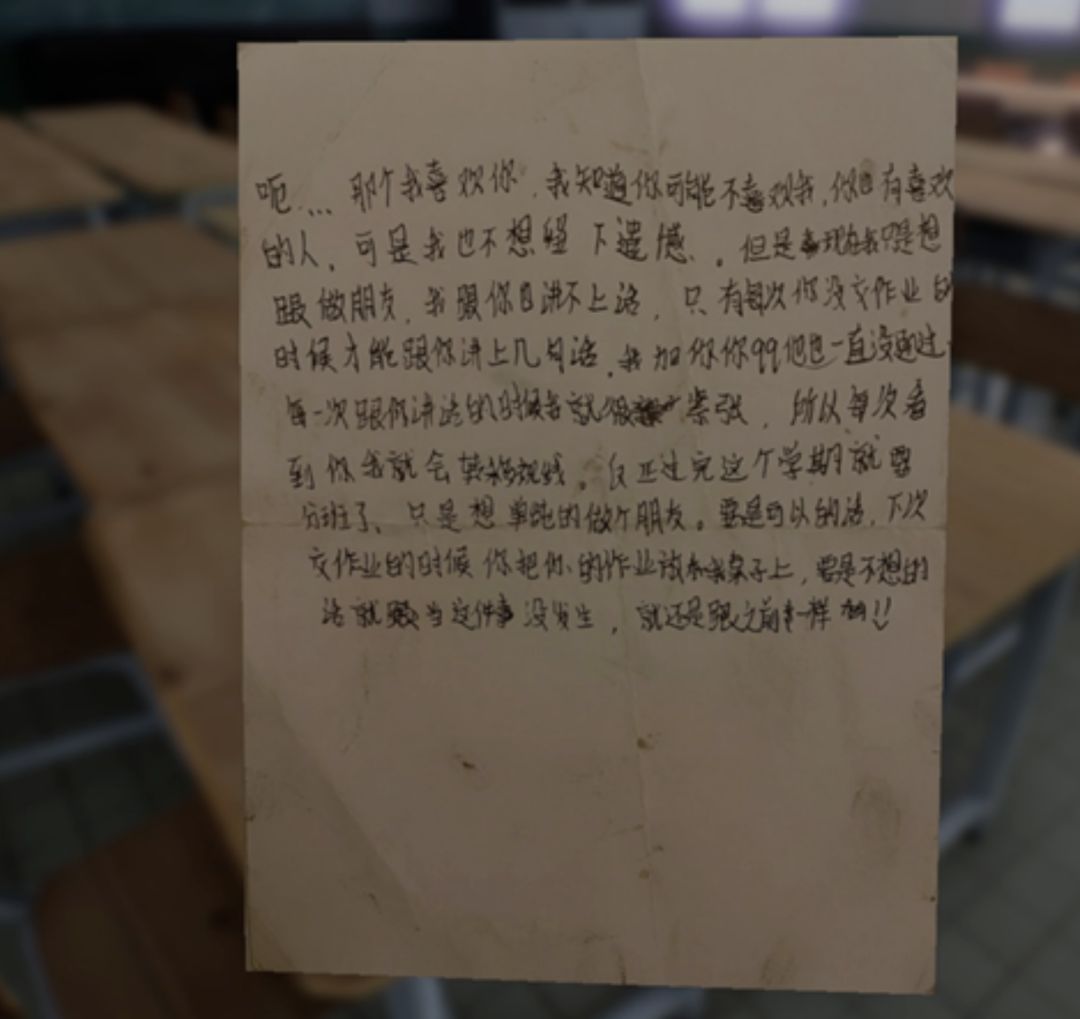 呃... 那个我喜欢你，我知道你可能不喜欢我，你 有喜欢
的人，可是我也不想 下遗憾。但是 现在我只是想
跟做朋友，我跟你 讲不上话，只有每次你没交作业的
时候才能跟你讲上几句话，我加你你qq你也一直没通过
每一次跟你讲话的时候 就很 紧张，所以每次看
到你我就会转移视线。反正过完这个学期就要
分班了，只是想单纯的做个朋友。要是可以的话，下次
交作业的时候你把你的作业放 我桌子上，要是不想的
话就 当这件事没发生，就还是跟之前 一样 !!